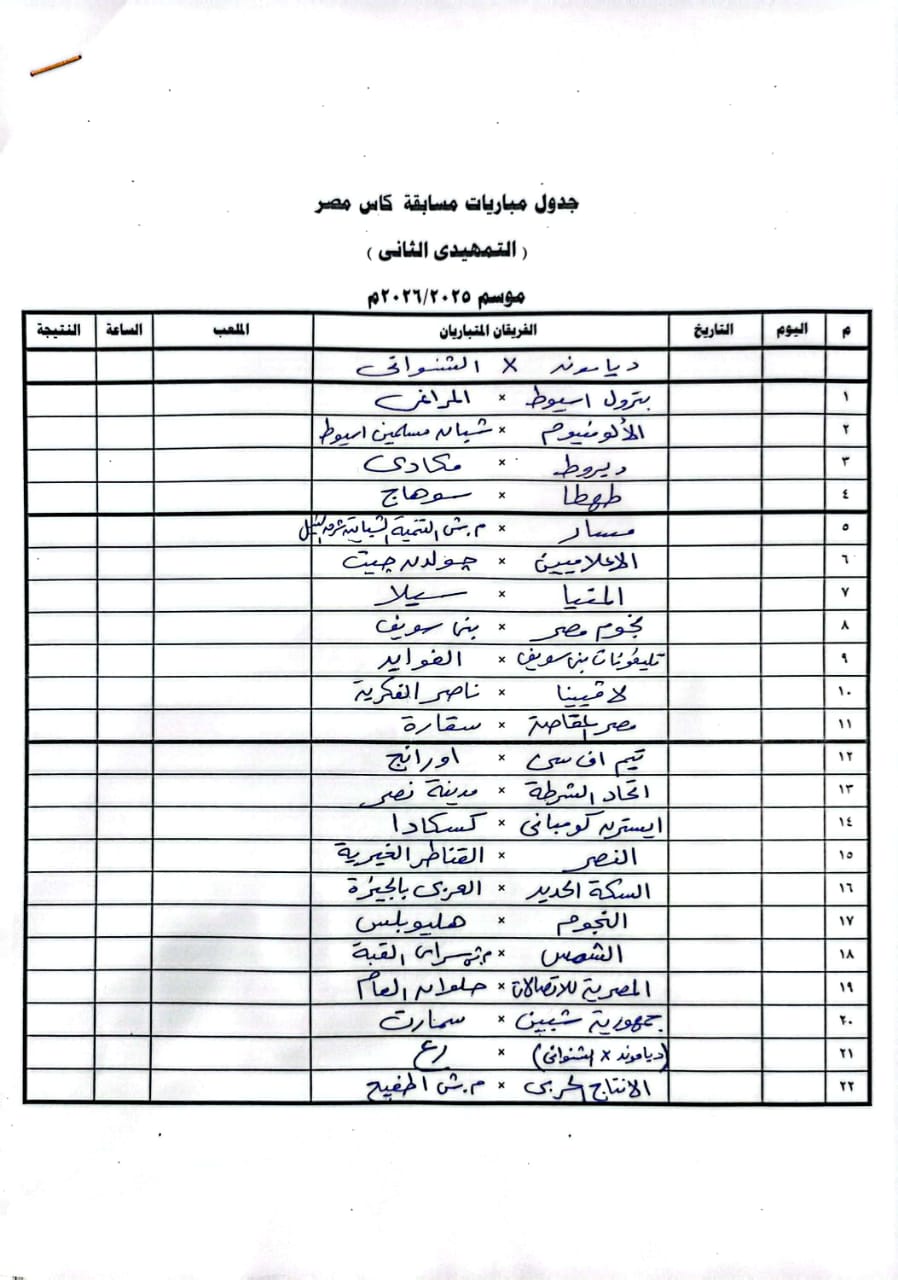 جدول مباريات مسابقة كاس مصر
( التمهيدى الثانى )
موسم ٢٠٢٦/٢٠٢٥م
م اليوم التاريخ الفريقان المتباريان الملعب الساعة النتيجة
دياموند X الشنوانى
١ بترول اسيوط × المراغى
٢ الألومنيوم × شبان مسلمين اسيوط
٣ ديروط × مكادى
٤ طهطا × سوهاج
٥ مسار × م.ش التنمية الشبابية شرق النيل
٦ الاعلاميين × جولدن جيت
٧ المنيا × سيلا
٨ نجوم مصر × بنى سويف
٩ تليفونات بنى سويف × الفوايد
١٠ لافيينا × ناصر الفكرية
١١ مصر المقاصة × سقارة
١٢ تيم اف سى × اورانج
١٣ اتحاد الشرطة × مدينة نصر
١٤ ايسترن كومبانى × كسكادا
١٥ النصر × القناطر الخيرية
١٦ السكة الحديد × العربى بالجيزة
١٧ النجوم × هليوبلس
١٨ الشمس × م.ش سراى القبة
١٩ المصرية للاتصالات × حلوان العام
٢٠ جمهورية شبين × سمارت
٢١ (دياموند X الشنوانى) × رع
٢٢ الانتاج الحربى × م.ش اطفيح